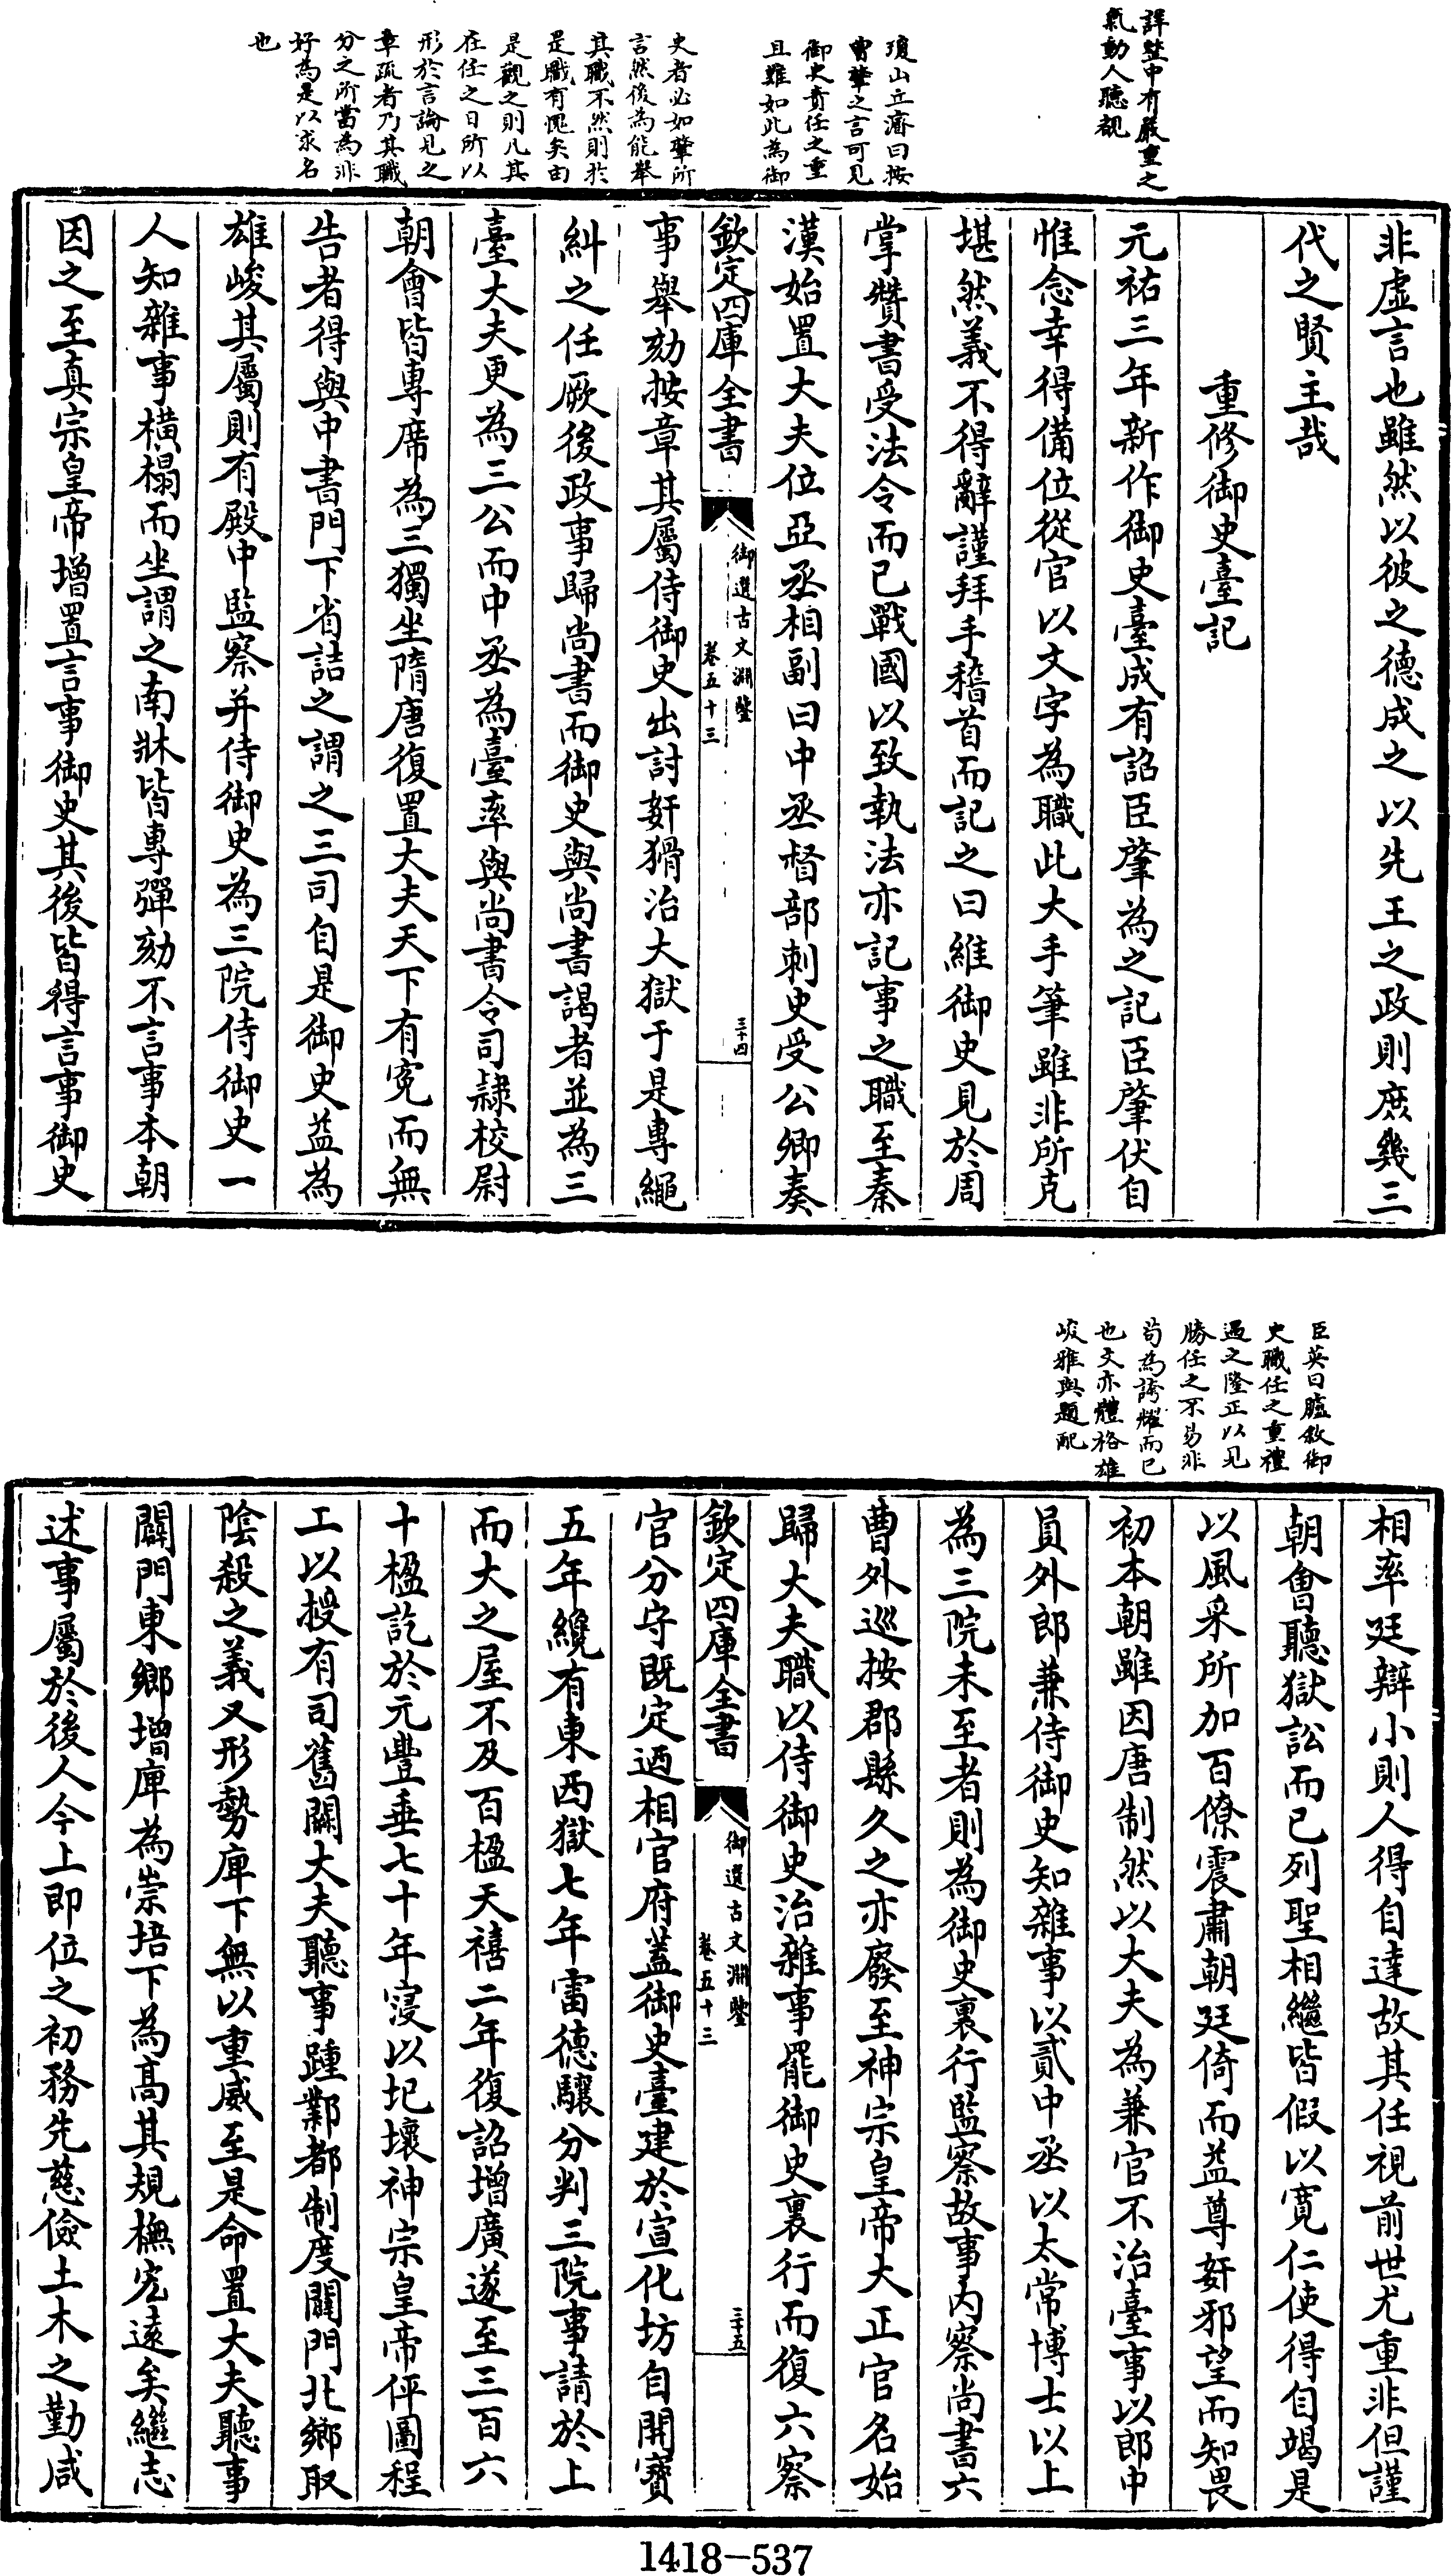 詳整中有嚴重之
氣動人聽觀
瓊山丘濬曰按
曾肇之言可見
御史責任之重
且難如此為御
史者必如肇所
言然後為能舉
其職不然則於
是職有愧矣由
是觀之則凡其
在任之日所以
形於言論見之
章疏者乃其職
分之所當為非
好為是以求名
也
非虛言也雖然以彼之德成之以先王之政則庶幾三
代之賢主哉
重修御史臺記
元祐三年新作御史臺成有詔臣肇為之記臣肇伏自
惟念幸得備位從官以文字為職此大手筆雖非所克
堪然義不得辭謹拜手稽首而記之曰維御史見於周
掌贊書受法令而已戰國以致執法亦記事之職至秦
漢始置大夫位亞丞相副曰中丞督部刺史受公卿奏
欽定四庫全書
御選古文淵鑒
卷五十三
三十四
事舉劾按章其屬侍御史出討奸猾治大獄于是專繩
糾之任厥後政事歸尚書而御史與尚書謁者並為三
臺大夫更為三公而中丞為臺率與尚書令司隸校尉
朝會皆專席為三獨坐隋唐復置大夫天下有寃而無
告者得與中書門下省詰之謂之三司自是御史益為
雄峻其屬則有殿中監察并侍御史為三院侍御史一
人知雜事橫榻而坐謂之南牀皆專彈劾不言事本朝
因之至真宗皇帝增置言事御史其後皆得言事御史
臣英曰臚敘御
史職任之重禮
遇之隆正以見
勝任之不易非
茍為誇耀而已
也文亦體格雄
峻雅與題配
相率廷辯小則人得自達故其任視前世尤重非但謹
朝會聽獄訟而已列聖相繼皆假以寬仁使得自竭是
以風采所加百僚震肅朝廷倚而益尊奸邪望而知畏
初本朝雖因唐制然以大夫為兼官不治臺事以郎中
員外郎兼侍御史知雜事以貳中丞以太常博士以上
為三院未至者則為御史裏行監察故事內察尚書六
曹外巡按郡縣久之亦廢至神宗皇帝大正官名始
歸大夫職以侍御史治雜事罷御史裏行而復六察
欽定四庫全書
御選古文淵鑒
卷五十三
三十五
官分守既定迺相官府蓋御史臺建於宣化坊自開寶
五年纔有東西獄七年雷德驤分判三院事請於上
而大之屋不及百楹天禧二年復詔增廣遂至三百六
十楹訖於元豐垂七十年寖以圮壞神宗皇帝伻圖程
工以授有司舊闕大夫聽事踵鄴都制度闢門北鄉取
陰殺之義又形勢庳下無以重威至是命置大夫聽事
闢門東鄉增庳為崇培下為高其規橅宏遠矣繼志
述事屬於後人今上即位之初務先慈儉土木之勤咸
1418-537